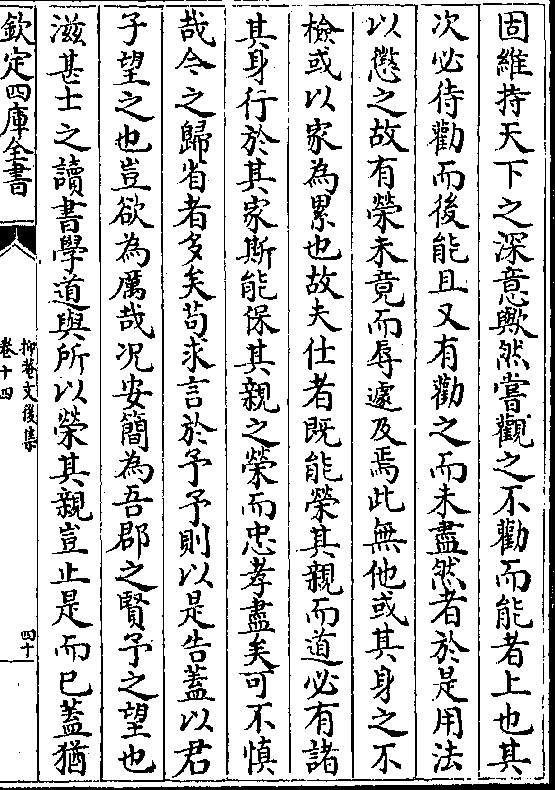 固維持天下之深意歟然嘗觀之不勸而能者上也其
次必待勸而後能且又有勸之而未盡然者於是用法
以懲之故有榮未竟而辱遽及焉此無他或其身之不
檢或以家為累也故夫仕者既能榮其親而道必有諸
其身行於其家斯能保其親之榮而忠孝盡矣可不慎
哉今之歸省者多矣苟求言於予予則以是告蓋以君
子望之也豈欲為厲哉况安簡為吾郡之賢予之望也
滋甚士之讀書學道與所以榮其親豈止是而已蓋猶
欽定四庫全書
抑菴文後集
卷十四
四十